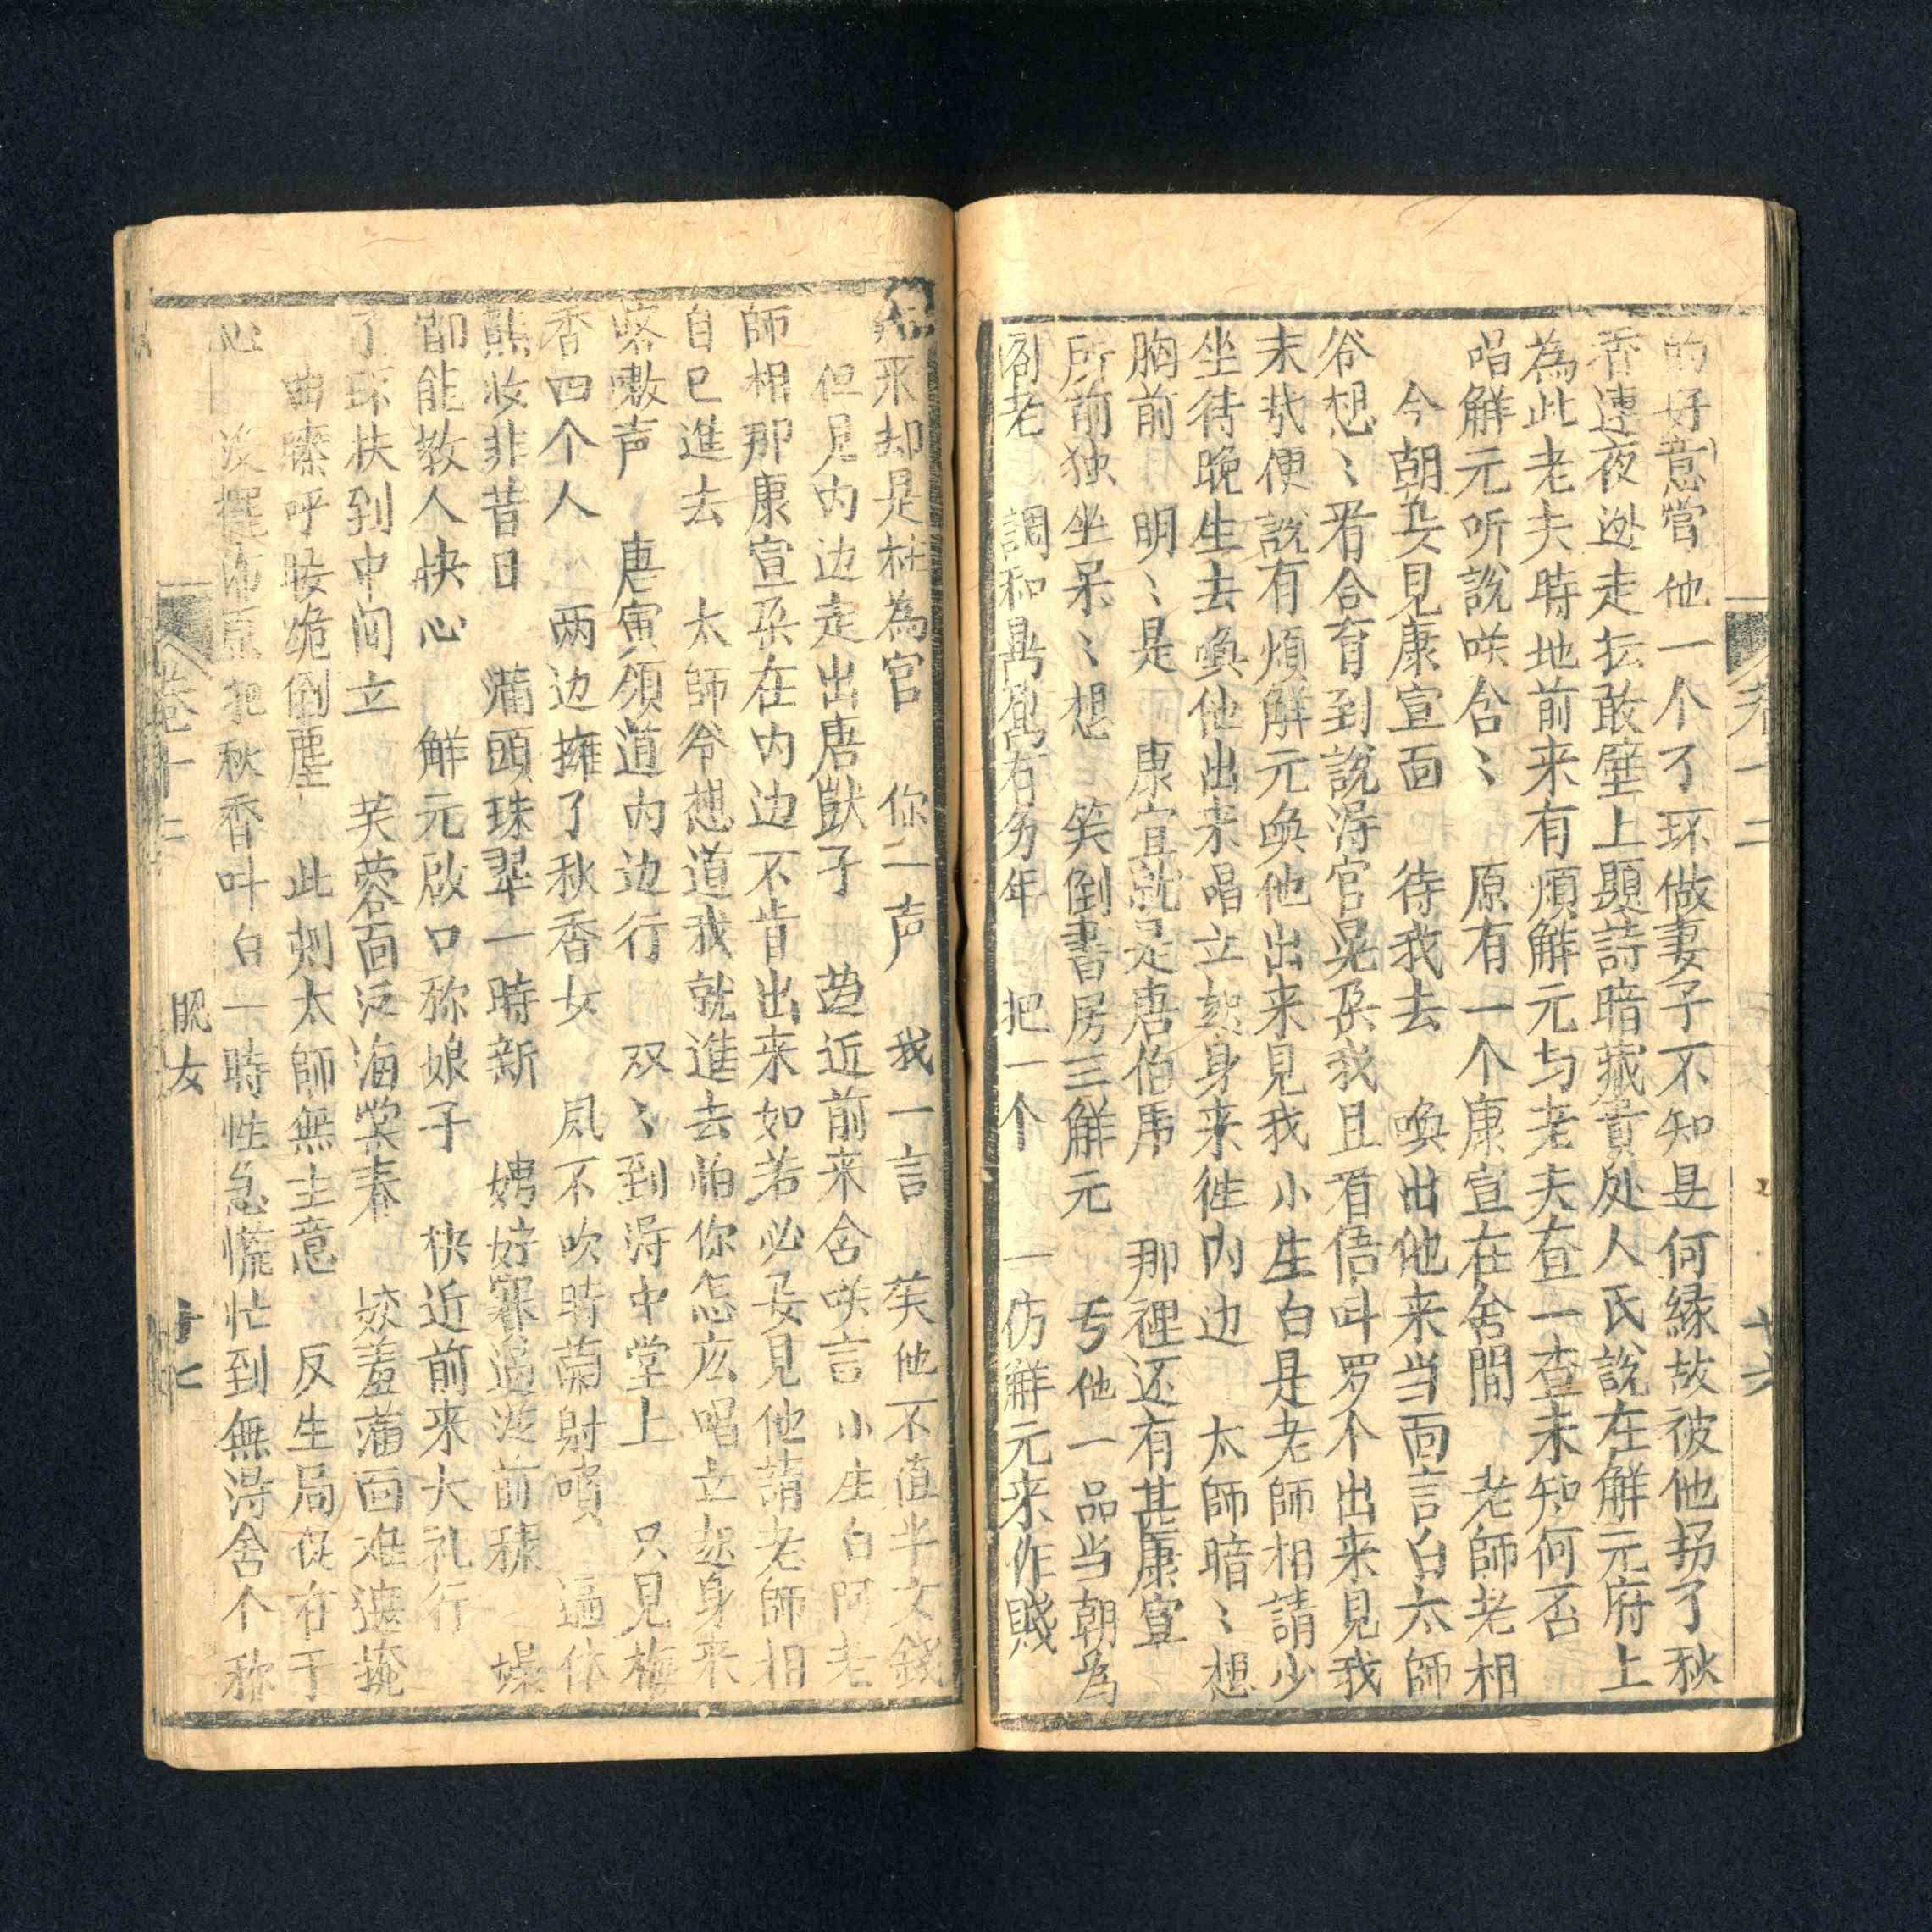 的好意當他一个了环做妻子不知是何縁故彼他拐了秋
香連夜逊走抎敢壁上題詩暗藏貢处人氏說在解元府上
為此老夫時地前来有煩解元与老夫査一查未知何否
唱解元听說咲舎〻 原有一个康宣在舍間 老師老相
今朝妥見康宣面 待我去 喚出他来当面言白太師
爷想〻看合育到說淂官晃朶我且看俉叫罗不出来見我
末㢤便説有煩解元喚他出来見我小生白是老師相請少
坐待晚生去喚他出来唱立起身来徃内边 太師暗〻想
胸前 明〻是 康宣就是唐伯虎 那裡还有其康宣
所前独坐呆〻想 笑倒書房三解元 亐他一品当朝為
阁老 調和鼎鼐有多年 把一个 一仿解元来作賤
卷十二 十六
起来却是枉為官 你一声 我一言 笑他不值半文錢
但見内边走出唐獃子 趋近前来舍咲言小生白阿老
師相那康宣朶在内边不肯出来如若必妥見他請老師相
自己進去 太師爷想道我就進去怕你怎庅唱立起身来
咯嗽声 唐寅領道内边行 双〻到淂中堂上 只見梅
香四个人 两边擁了秋香女 風不吹時蘭射噴 逼体
熊妆非昔日 蒲頭珠翠一時新 娉婷寡逥逆前穐 㷮
卽能教人快心 觧元啟口称娘子 快近前来大礼行
了环扶到中间立 芙蓉面泛海棠春 姣羞蒲面难遮掩
曲㬠呼妥跪倒塵 此刻太師無主意 反生局促冇于
心 没擺佈原把秋香叶白一時性急慌忙到無淂舍个称
卷十二 昵女 十七